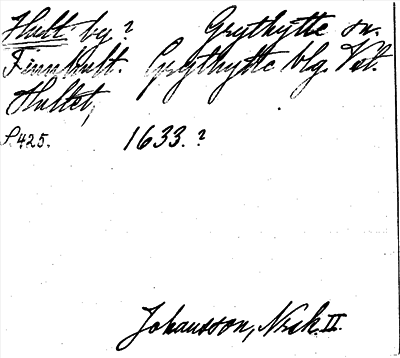 Hult. by? Grythytte sn.
Finnhult. Grythytte blg. Vst.
Hultet,
S 425. 1633.?
Johansson, Nrsk. II.